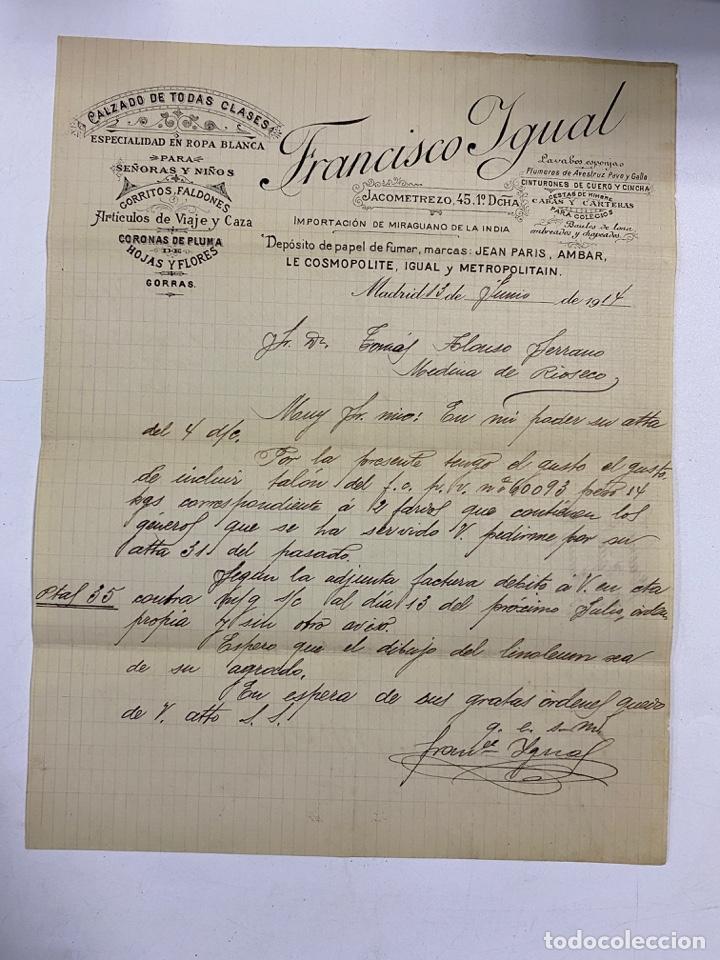 CALZADO DE TODAS CLASES
ESPECIALIDAD EN ROPA BLANCA
PARA
SEÑORAS Y NIÑOS
GORRITOS, FALDONES
Artículos de Viaje y Caza
CORONAS DE PLUMA
DE
HOJAS Y FLORES
GORRAS.
Francisco Igual
JACOMETREZO, 45, 1º DCHA
IMPORTACIÓN DE MIRAGUANO DE LA INDIA
Depósito de papel de fumar, marcas: JEAN PARIS, AMBAR,
LE COSMOPOLITE, IGUAL y METROPOLITAIN.
Lavabos esponjas
Plumeros de Avestruz Pavo y Gallo
CINTURONES DE CUERO Y CINCHA
CESTAS DE MIMBRE
CABÁS Y CARTERAS
PARA COLEGIOS
Baules de lona
embreados y chapeados
Madrid 13 de Junio de 1914
Sr. Dn. Tomás Alonso Serrano
Medina de Rioseco
Muy Sr. mio: En mi poder su atta
del 4 d/c.
Por la presente tengo el gusto el gusto
de incluir talón del f.c. p.v. nº 60093 peso 14
kgs correspondiente á 12 fardos que contienen los
géneros que se ha servido V. pedirme por su
atta 31 del pasado.
Segun la adjunta factura debito á V. en cta
Ptas 35 contra m/g s/c al día 13 del próximo Julio, orden
propia y sin otro aviso.
Espero que el dibujo del linoleum sea
de su agrado.
En espera de sus gratas órdenes quedo
de V. atto S.S.
q. e. s. m.
Franco Igual
todocoleccion
todocoleccion.net